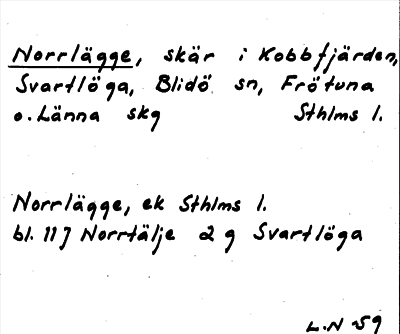 Norrlägge, skär i Kobbfjärden,
Svartlöga, Blidö sn, Frötuna
o. Länna skg Sthlms l.
Norrlägge, ek Sthlms l.
bl. 117 Norrtälje 2 g Svartlöga
L.N 59